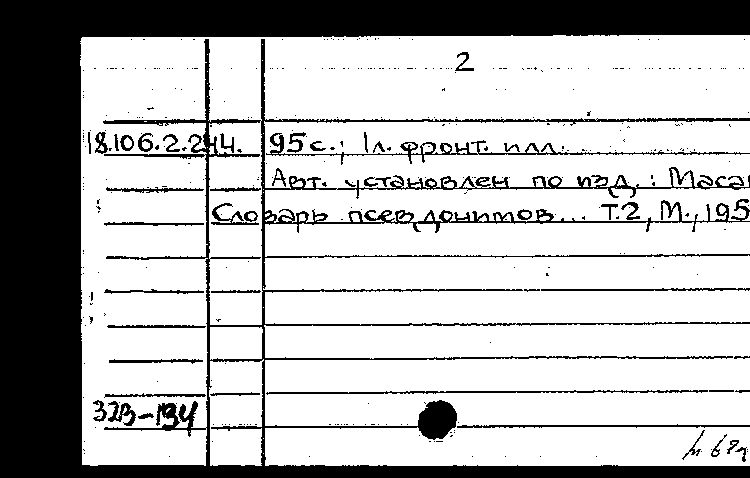 2
18.106.2.244. 95 с.; 1 л. фронт. илл.
Авт. установлен по изд.: Маса
Словарь псевдонимов... Т.2, М., 195
32В-134